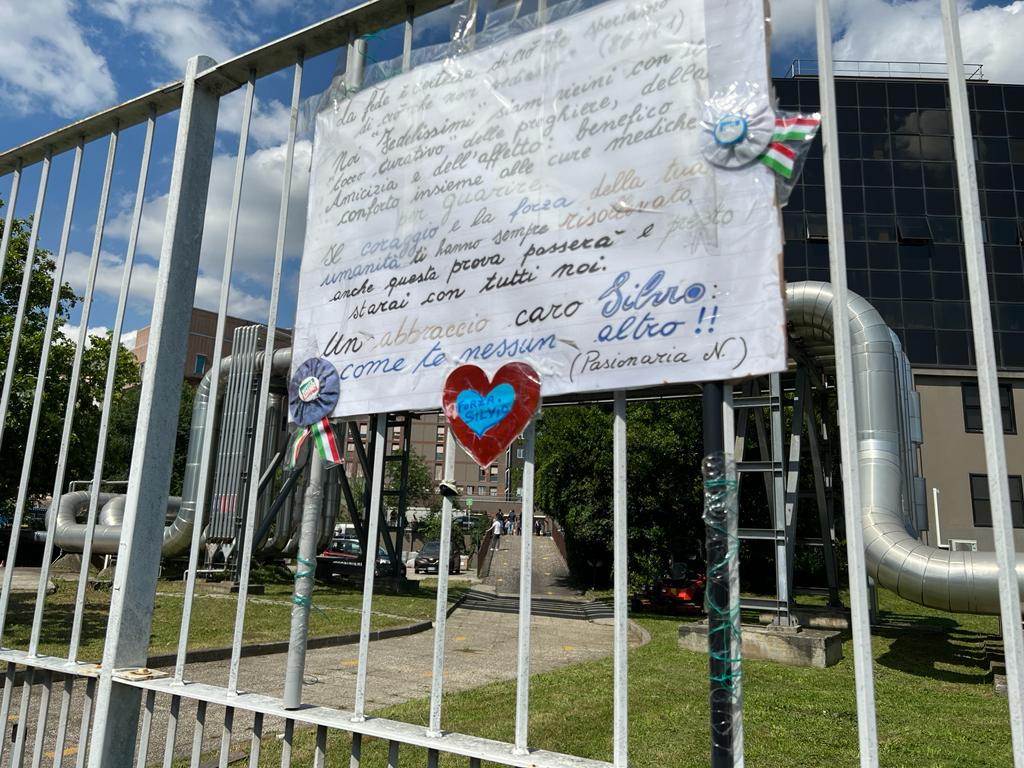 La fede è certezza di ciò che speriamo
di ciò che non
Noi "Fedelissimi" siam vicini con il
tocco "curativo" delle preghiere, della
Amicizia e dell'affetto: benefico
conforto insieme alle cure mediche
per guarire.
Il coraggio e la forza della tua
umanità ti hanno sempre risollevato,
anche questa prova passerà e presto
starai con tutti noi.
Un abbraccio caro Silvio:
come te nessun altro!!
(Pasionaria N.)
FORZA
SILVIO